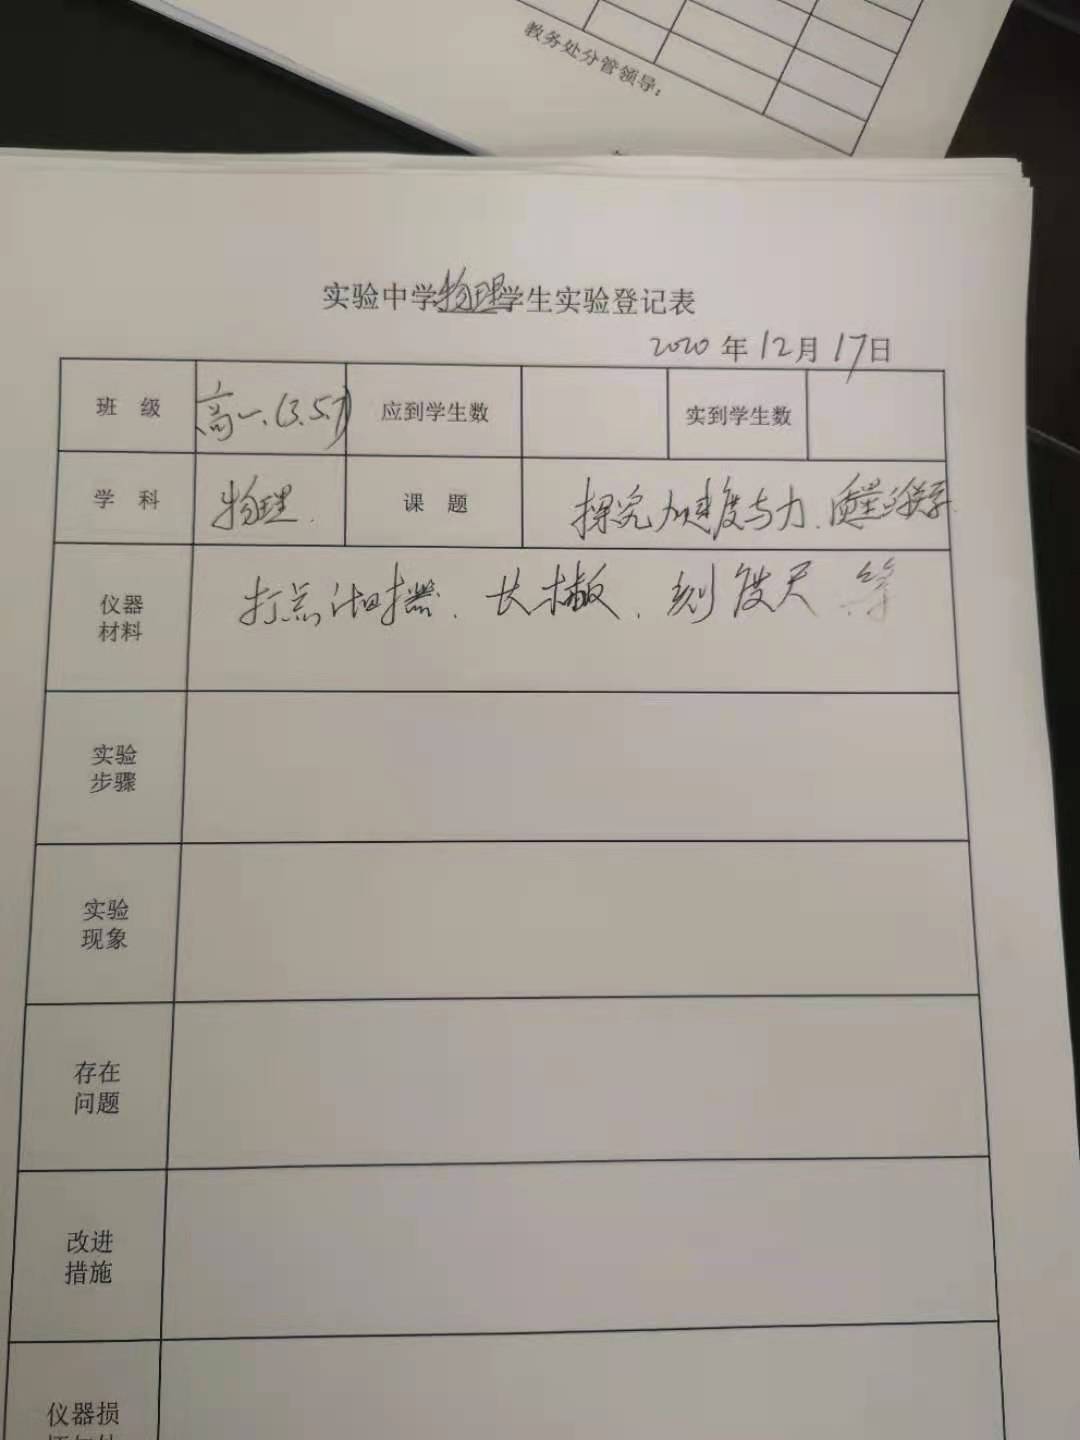 教务处分管领导：
实验中学物理学生实验登记表
2020 年 12月 17日
班 级 高一.(3.5.7) 应到学生数 实到学生数
学 科 物理. 课 题 探究加速度与力.质量的关系.
仪器 打点计时器、长木板、刻度尺 等
材料
实验
步骤
实验
现象
存在
问题
改进
措施
仪器损